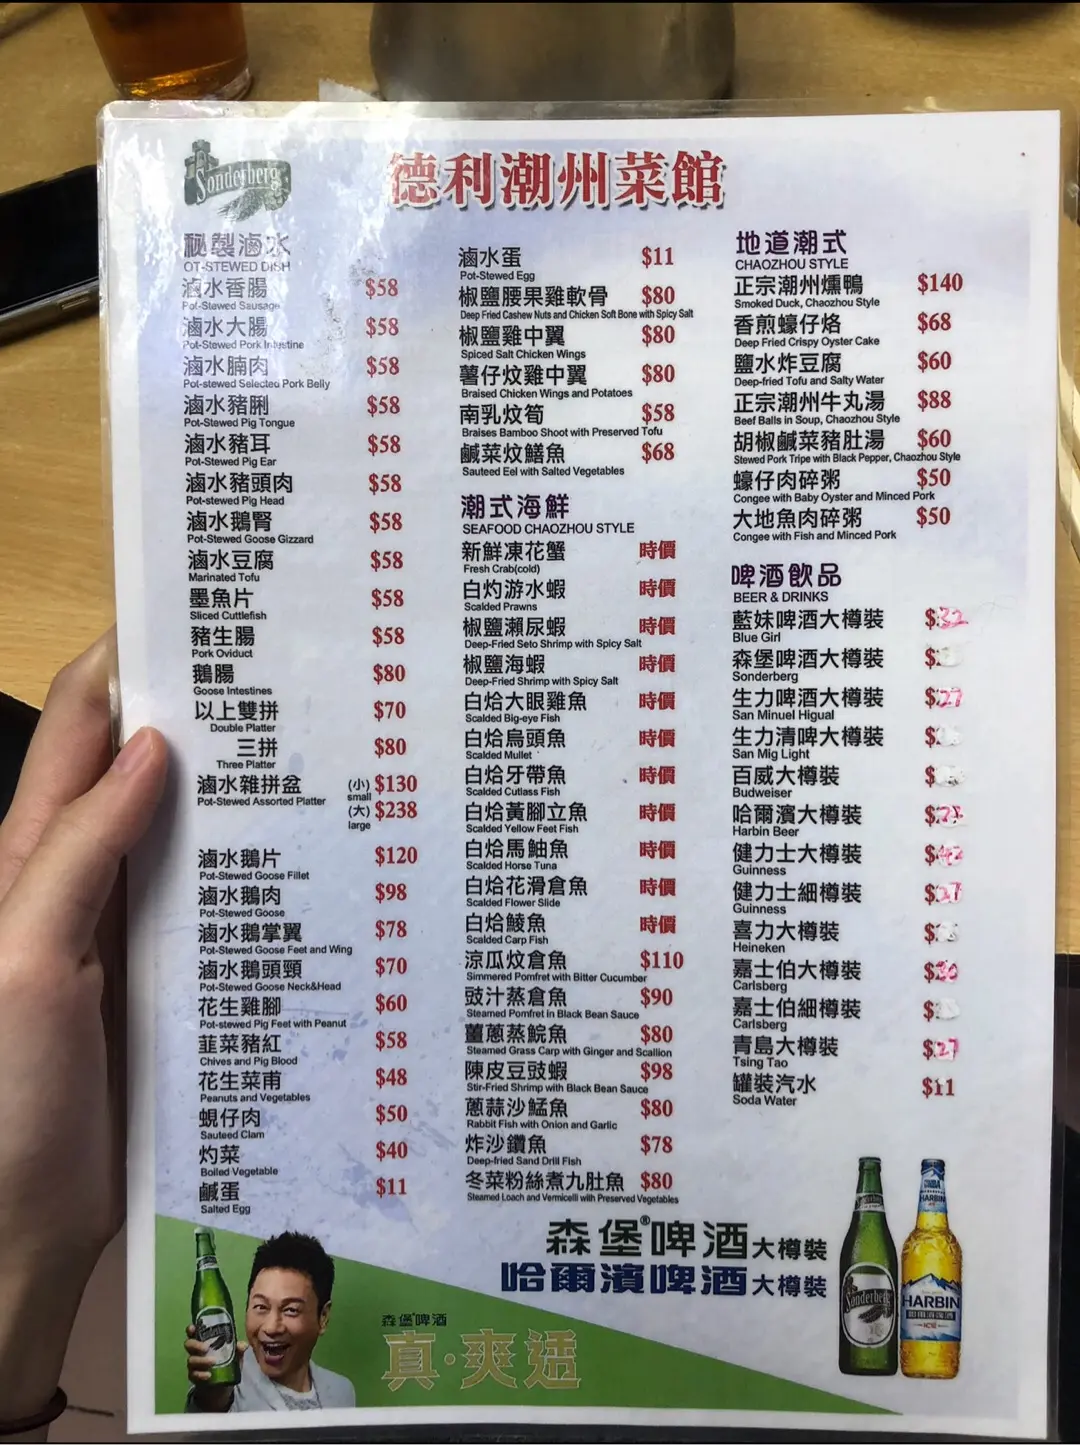 Sonderberg
德利潮州菜館
秘製滷水
OT-STEWED DISH
滷水香腸 $58
Pot-Stewed Sausage
滷水大腸 $58
Pot-Stewed Pork Intestine
滷水腩肉 $58
Pot-stewed Selected Pork Belly
滷水豬脷 $58
Pot-Stewed Pig Tongue
滷水豬耳 $58
Pot-Stewed Pig Ear
滷水豬頭肉 $58
Pot-stewed Pig Head
滷水鵝腎 $58
Pot-Stewed Goose Gizzard
滷水豆腐 $58
Marinated Tofu
墨魚片 $58
Sliced Cuttlefish
豬生腸 $58
Pork Oviduct
鵝腸 $80
Goose Intestines
以上雙拼 $70
Double Platter
三拼 $80
Three Platter
滷水雜拼盆 (小) $130
Pot-Stewed Assorted Platter small
(大) $238
large
滷水鵝片 $120
Pot-Stewed Goose Fillet
滷水鵝肉 $98
Pot-Stewed Goose
滷水鵝掌翼 $78
Pot-Stewed Goose Feet and Wing
滷水鵝頭頸 $70
Pot-Stewed Goose Neck&Head
花生雞腳 $60
Pot-stewed Pig Feet with Peanut
韮菜豬紅 $58
Chives and Pig Blood
花生菜甫 $48
Peanuts and Vegetables
蜆仔肉 $50
Sauteed Clam
灼菜 $40
Boiled Vegetable
鹹蛋 $11
Salted Egg
滷水蛋 $11
Pot-Stewed Egg
椒鹽腰果雞軟骨 $80
Deep Fried Cashew Nuts and Chicken Soft Bone with Spicy Salt
椒鹽雞中翼 $80
Spiced Salt Chicken Wings
薯仔炆雞中翼 $80
Braised Chicken Wings and Potatoes
南乳炆筍 $58
Braises Bamboo Shoot with Preserved Tofu
鹹菜炆鱔魚 $68
Sauteed Eel with Salted Vegetables
潮式海鮮
SEAFOOD CHAOZHOU STYLE
新鮮凍花蟹 時價
Fresh Crab(cold)
白灼游水蝦 時價
Scalded Prawns
椒鹽瀨尿蝦 時價
Deep-Fried Seto Shrimp with Spicy Salt
椒鹽海蝦 時價
Deep-Fried Shrimp with Spicy Salt
白烚大眼雞魚 時價
Scalded Big-eye Fish
白烚烏頭魚 時價
Scalded Mullet
白烚牙帶魚 時價
Scalded Cutlass Fish
白烚黃腳立魚 時價
Scalded Yellow Feet Fish
白烚馬鮋魚 時價
Scalded Horse Tuna
白烚花滑倉魚 時價
Scalded Flower Slide
白烚鯪魚 時價
Scalded Carp Fish
涼瓜炆倉魚 $110
Simmered Pomfret with Bitter Cucumber
豉汁蒸倉魚 $90
Steamed Pomfret in Black Bean Sauce
薑蔥蒸鯇魚 $80
Steamed Grass Carp with Ginger and Scallion
陳皮豆豉蝦 $98
Stir-Fried Shrimp with Black Bean Sauce
蔥蒜沙鯭魚 $80
Rabbit Fish with Onion and Garlic
炸沙鑽魚 $78
Deep-fried Sand Drill Fish
冬菜粉絲煮九肚魚 $80
Steamed Loach and Vermicelli with Preserved Vegetables
地道潮式
CHAOZHOU STYLE
正宗潮州燻鴨 $140
Smoked Duck, Chaozhou Style
香煎蠔仔烙 $68
Deep Fried Crispy Oyster Cake
鹽水炸豆腐 $60
Deep-fried Tofu and Salty Water
正宗潮州牛丸湯 $88
Beef Balls in Soup, Chaozhou Style
胡椒鹹菜豬肚湯 $60
Stewed Pork Tripe with Black Pepper, Chaozhou Style
蠔仔肉碎粥 $50
Congee with Baby Oyster and Minced Pork
大地魚肉碎粥 $50
Congee with Fish and Minced Pork
啤酒飲品
BEER & DRINKS
藍妹啤酒大樽裝 $32
Blue Girl
森堡啤酒大樽裝 $
Sonderberg
生力啤酒大樽裝 $27
San Minuel Higual
生力清啤大樽裝 $
San Mig Light
百威大樽裝 $
Budweiser
哈爾濱大樽裝 $27
Harbin Beer
健力士大樽裝 $42
Guinness
健力士細樽裝 $27
Guinness
喜力大樽裝 $
Heineken
嘉士伯大樽裝 $30
Carlsberg
嘉士伯細樽裝 $
Carlsberg
青島大樽裝 $27
Tsing Tao
罐裝汽水 $11
Soda Water
森堡®啤酒大樽裝
哈爾濱啤酒大樽裝
森堡®啤酒
真·爽透
Sonderberg
Sonderberg
HARBIN
HARBIN
哈爾濱啤酒